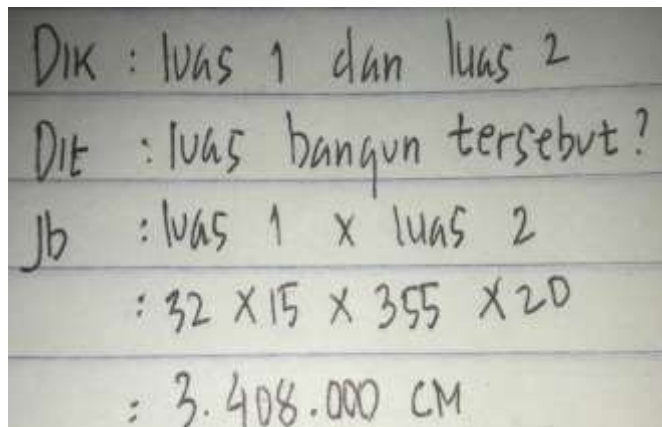 DIK : luas 1 dan luas 2
Dit : luas bangun tersebut?
Jb : luas 1 x luas 2
: 32 x 15 x 355 x 20
: 3.408.000 CM